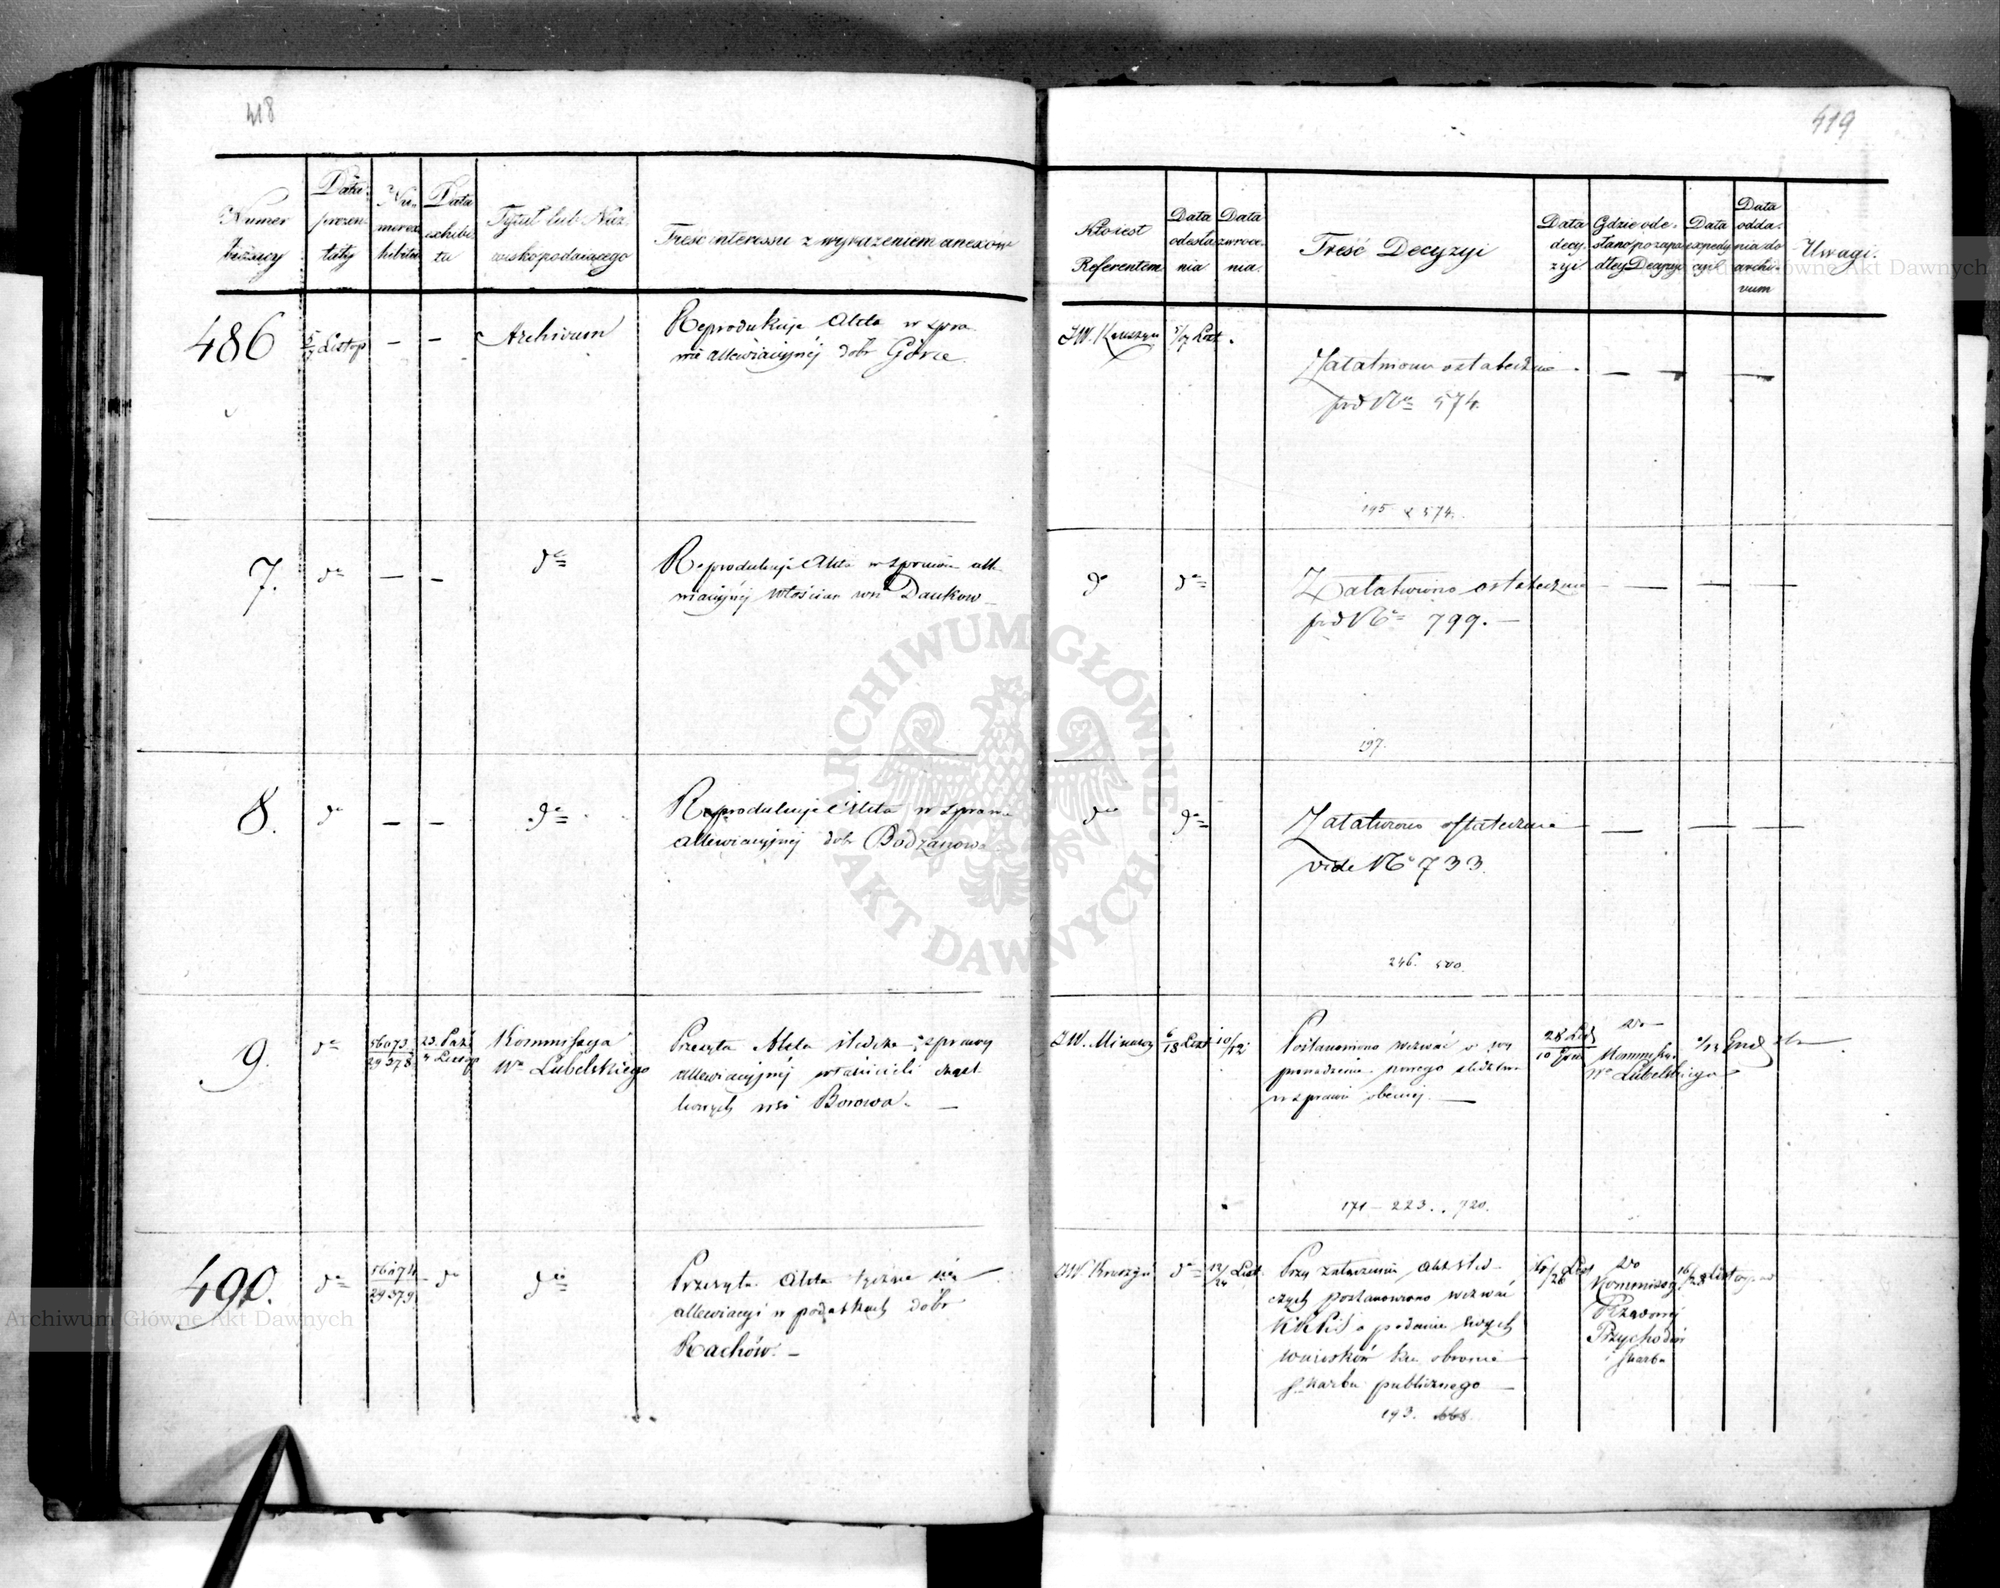 418
Numer bieżący
Data prezentaty
Numer exhibitu
Data exhibitu
Tytuł lub Nazwisko podaiącego
Treść interessu z wyrażeniem anexów
486
5/7 Listop
—
—
Archivum
Reprodukuje Akta w spra
wie allewiacyjnéj dóbr Górce.
7.
do
—
—
do
Reprodukuje Akta w sprawie
włościan wsi
8.
do
—
—
do
Reprodukuje Akta w sprawie
allewiacyjnéj dóbr Bodzanow
9.
do
56073
29378
23. Paź
4 Listop
Kommissya
Wa Lubelskiego
Przesyła Akta śledcze sprawy
allewiacyjnéj właścicieli cząst
kowych wsi Borowa. —
490.
do
56074
29379
do
do
Przesyła Akta tyczące się
allewiacyi w podatkach dóbr
Rachów. —
419
Kto iest Referentem
Data odesłania
Data zwrócenia.
Treść Decyzyi
Data decyzyi
Gdzie odesłano po zapadłey Decyzyi
Data expedycyi
Data oddania do archivum
Uwagi.
JW.
5/7 List
Załatwiono ostatecznie
pod No 574.
195 & 574.
do
do
Załatwiono ostatecznie
pod No 799. —
197.
do
do
Załatwiono ostatecznie
vide No 733.
246. 500.
JW.
6/18 List
10/12
Postanowiono wezwać o wy
prowadzenie nowego śledztwa
w sprawie obecnéj. —
28
10 Grud
do
Kommissyi
Wa Lubelskiego
Grud
171 — 223. . 720.
JW.
do
12/24 List.
Przy załączeniu Akt śled
czych postanowiono wezwać
KRPiS o podanie swych
wniosków ku obronie
skarbu publicznego
14/26 List
do
Kommissyi
Rządowéj
Przychodów
i Skarbu
16/28 List
193. 668.
ARCHIWUM GŁÓWNE AKT DAWNYCH
Archiwum Główne Akt Dawnych
Archiwum Główne Akt Dawnych